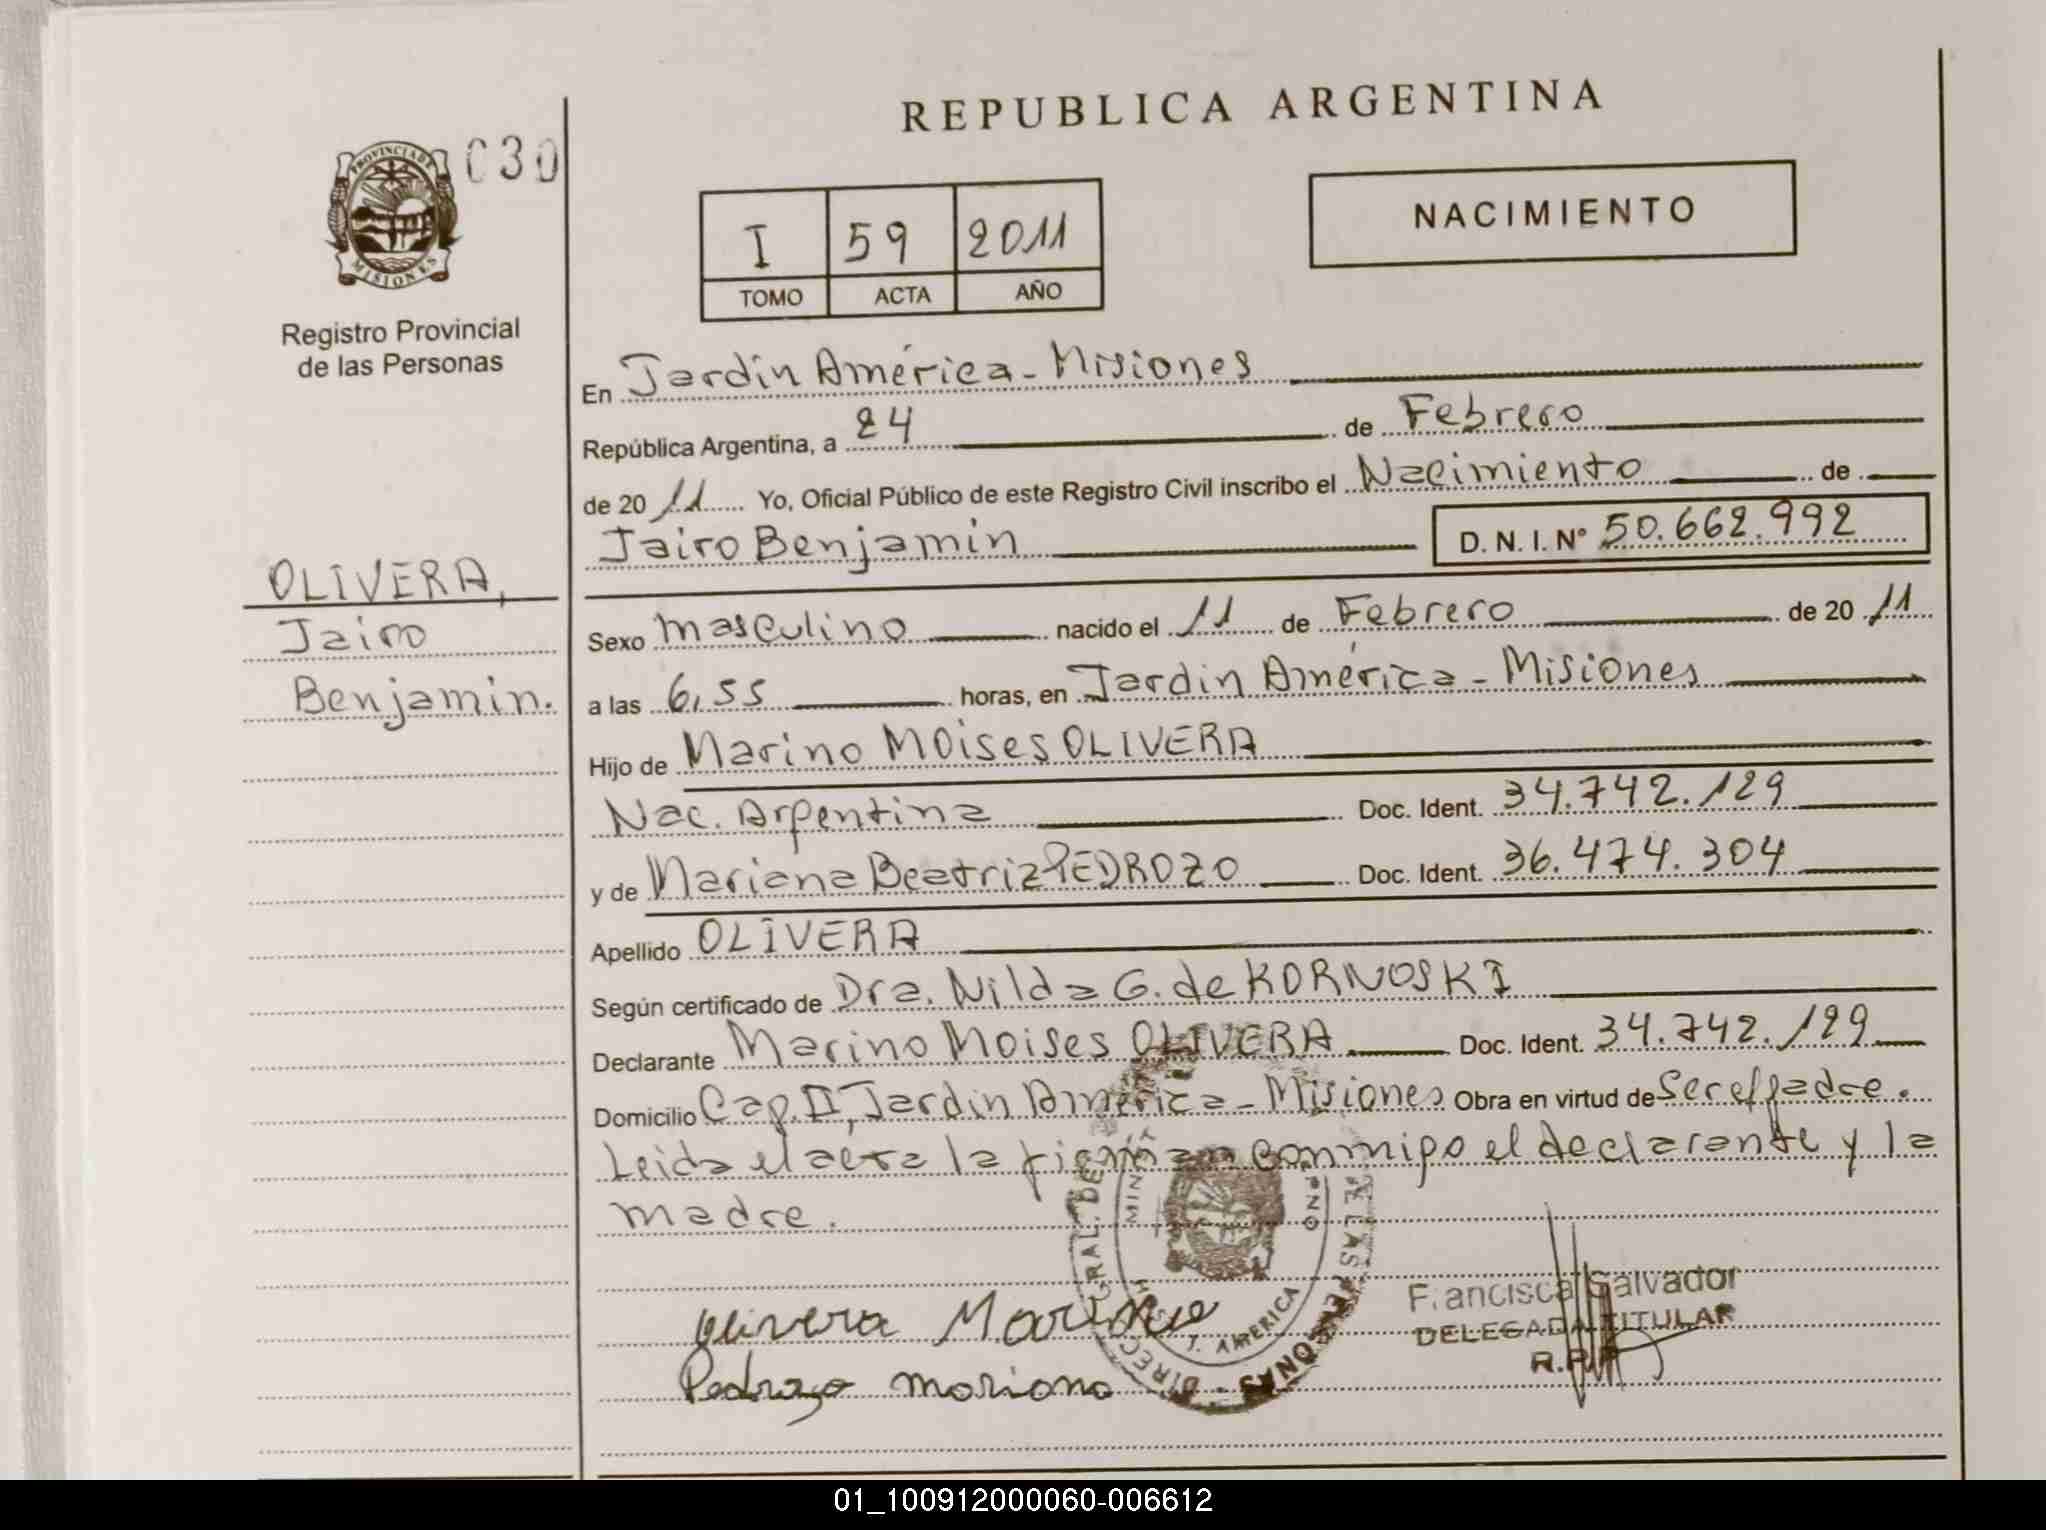 REPUBLICA ARGENTINA
PROVINCIA DE
MISIONES
030
Registro Provincial
de las Personas
I 59 2011
TOMO ACTA AÑO
NACIMIENTO
OLIVERA,
Jairo
Benjamin.
En Jardín América - Misiones
República Argentina, a 24 de Febrero
de 20 11 Yo, Oficial Público de este Registro Civil inscribo el Nacimiento de
Jairo Benjamin D. N. I. Nº 50.662.992
Sexo masculino nacido el 11 de Febrero de 20 11
a las 6,55 horas, en Jardin América - Misiones
Hijo de Marino Moises OLIVERA
Nac. Argentina Doc. Ident. 34.742.129
y de Mariana Beatriz PEDROZO Doc. Ident. 36.474.304
Apellido OLIVERA
Según certificado de Dra. Nilda G. de KORNOSKI
Declarante Marino Moises OLIVERA Doc. Ident. 34.742.129
Domicilio Cap. II, Jardin América - Misiones Obra en virtud de Ser el padre.
Leida el acta la firman conmigo el declarante y la
madre.
Olivera Marino
Pedrozo Mariana
DIRECC. GRAL. DE LAS PERSONAS
J. AMERICA
Francisca Salvador
DELEGADA TITULAR
R.P.P
01_100912000060-006612